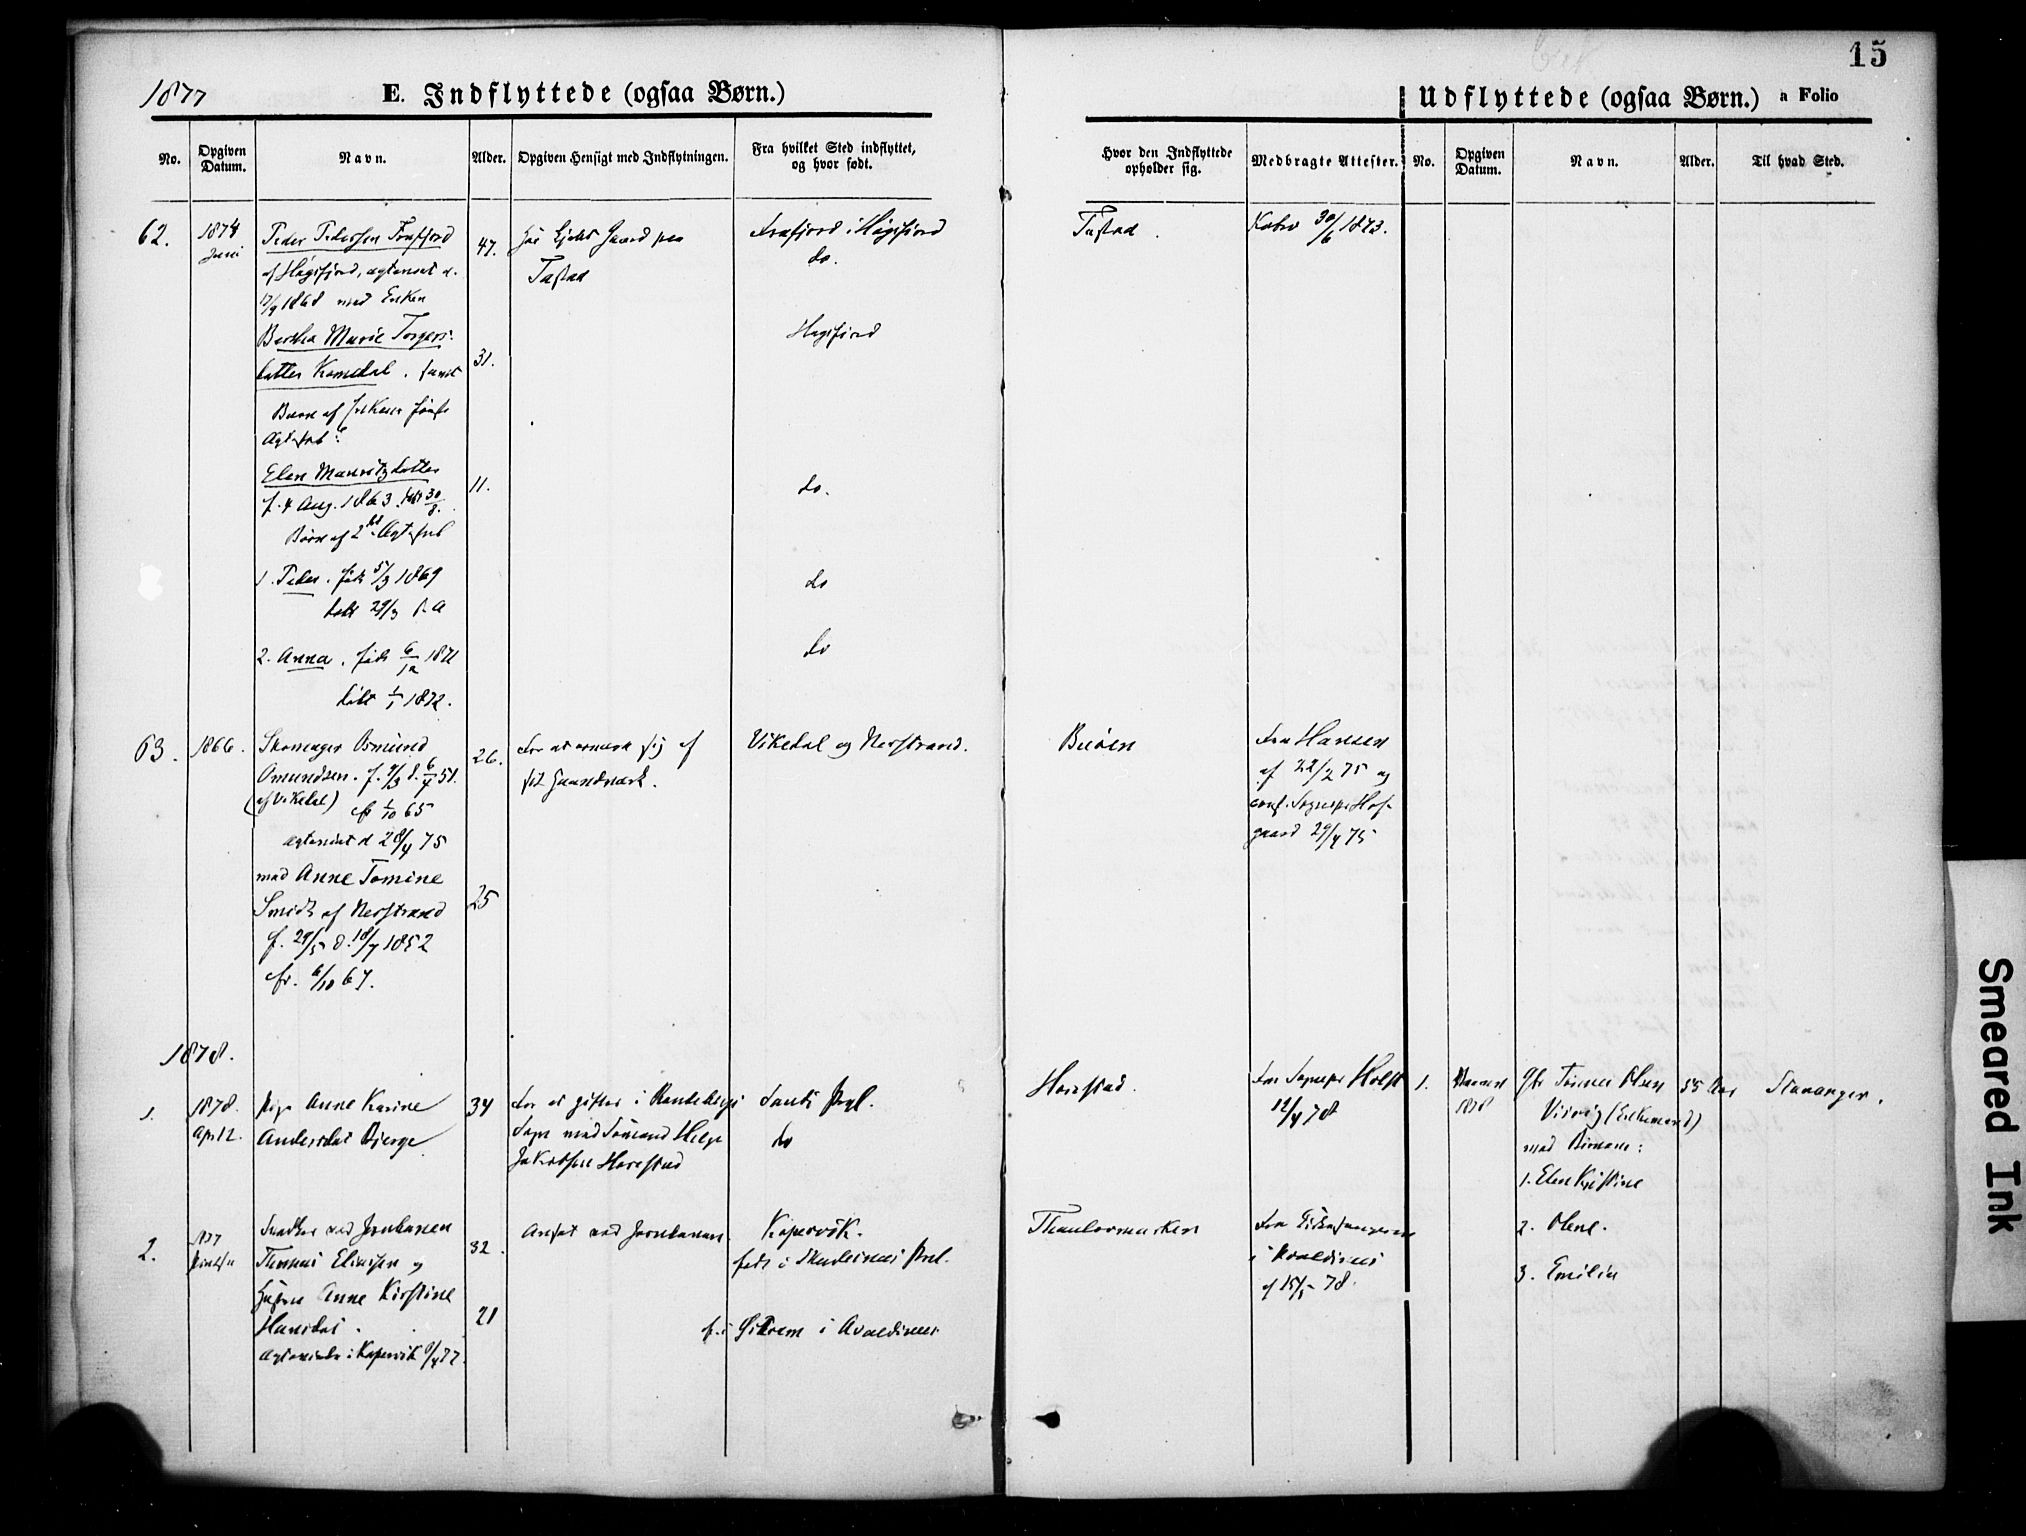 1877
E. Indflyttede (ogsaa Børn.)
No.
Opgiven Datum.
Navn.
Alder.
Opgiven Hensigt med Indflytningen.
Fra hvilket Sted indflyttet, og hvor født.
62.
1874
Juni
Peder Pedersen Frafjord
af Høgsfjord, ægteviet d.
17/9 1868 med Enken
Bertha Marie Torgers-
datter Komedal. samt
Børn af Enkens første
Ægteskab:
Elen Mauritzdatter
f. 4 Aug. 1863. døbt 30/8.
Børn af 2det Ægteskab
1. Peder. født 5/3 1869
døbt 29/3 s. A
2. Anna. født 6/12 1871
døbt 1/1 1872.
47.
31.
11.
har kjøbt Gaard paa
Tastad
Frafjord i Høgsfjord
do.
Høgsfjord
do.
do
do
63.
1866.
Skomager Osmund
Omundsen. f. 4/3 d. 6/4 51.
(af Vikedal) cfr 1/10 65
ægteviet d 28/4 75
med Anne Tomine
Smidt af Nerstrand
f. 29/5 d. 18/7 1852
cfr. 6/10 67.
26.
25
for at ernære sig af
sit Haandværk.
Vikedal og Nerstrand.
1878.
1.
1878.
Apr 12.
Pige Anne Karine
Andersdat Bjerge
34
for at giftes i Randebergs
Sogn med Sømand Helge
Jakobsen Harestad
Sands Prgl.
do
2.
1877
ved Jernbanen
Thomas Eliassen og
Hustru Anne Kirstine
Hansdat.
ægteviede i Kopervik 8/4 77.
32.
21
Ansat ved Jernbanen
Kopervik.
født i Skudesnes Prgl.
f. i Østrem i Avaldsnes
15
Udflyttede (ogsaa Børn.) a Folio
Hvor den Indflyttede opholder sig.
Medbragte Attester.
No.
Opgiven Datum.
Navn.
Alder.
Til hvad Sted.
Tastad.
30/6 1873.
Buøen
fra Hansen
af 22/2 75 og
const. Sognepr Hof-
gaard 29/4 75
Harestad.
fra Sognepr Holst
12/4 78
fra
i Avaldsnes
af 15/5 78.
1.
1878
Tønnes Olsen
(Enkemand)
med Børnene:
1. Elen Kristine
2. Olene.
3. Emilie
55 Aar
Stavanger.
Smeared Ink